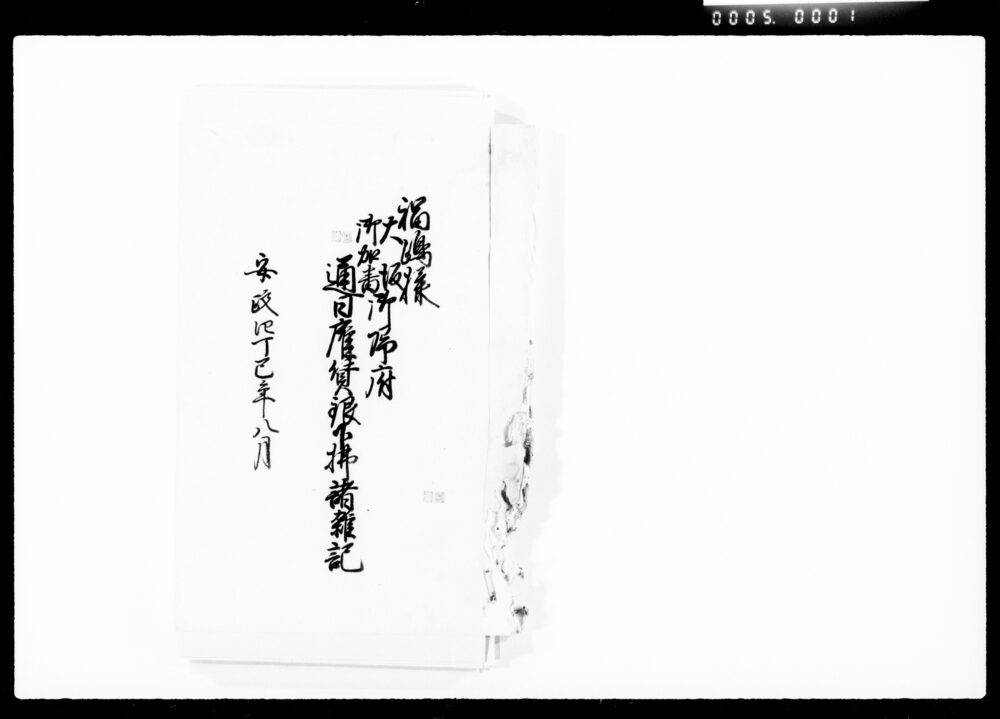 0005. 0001
福嶋様
大坂御帰府
御加番
通日雇賃銀下拂諸雑記
安政四丁巳年八月